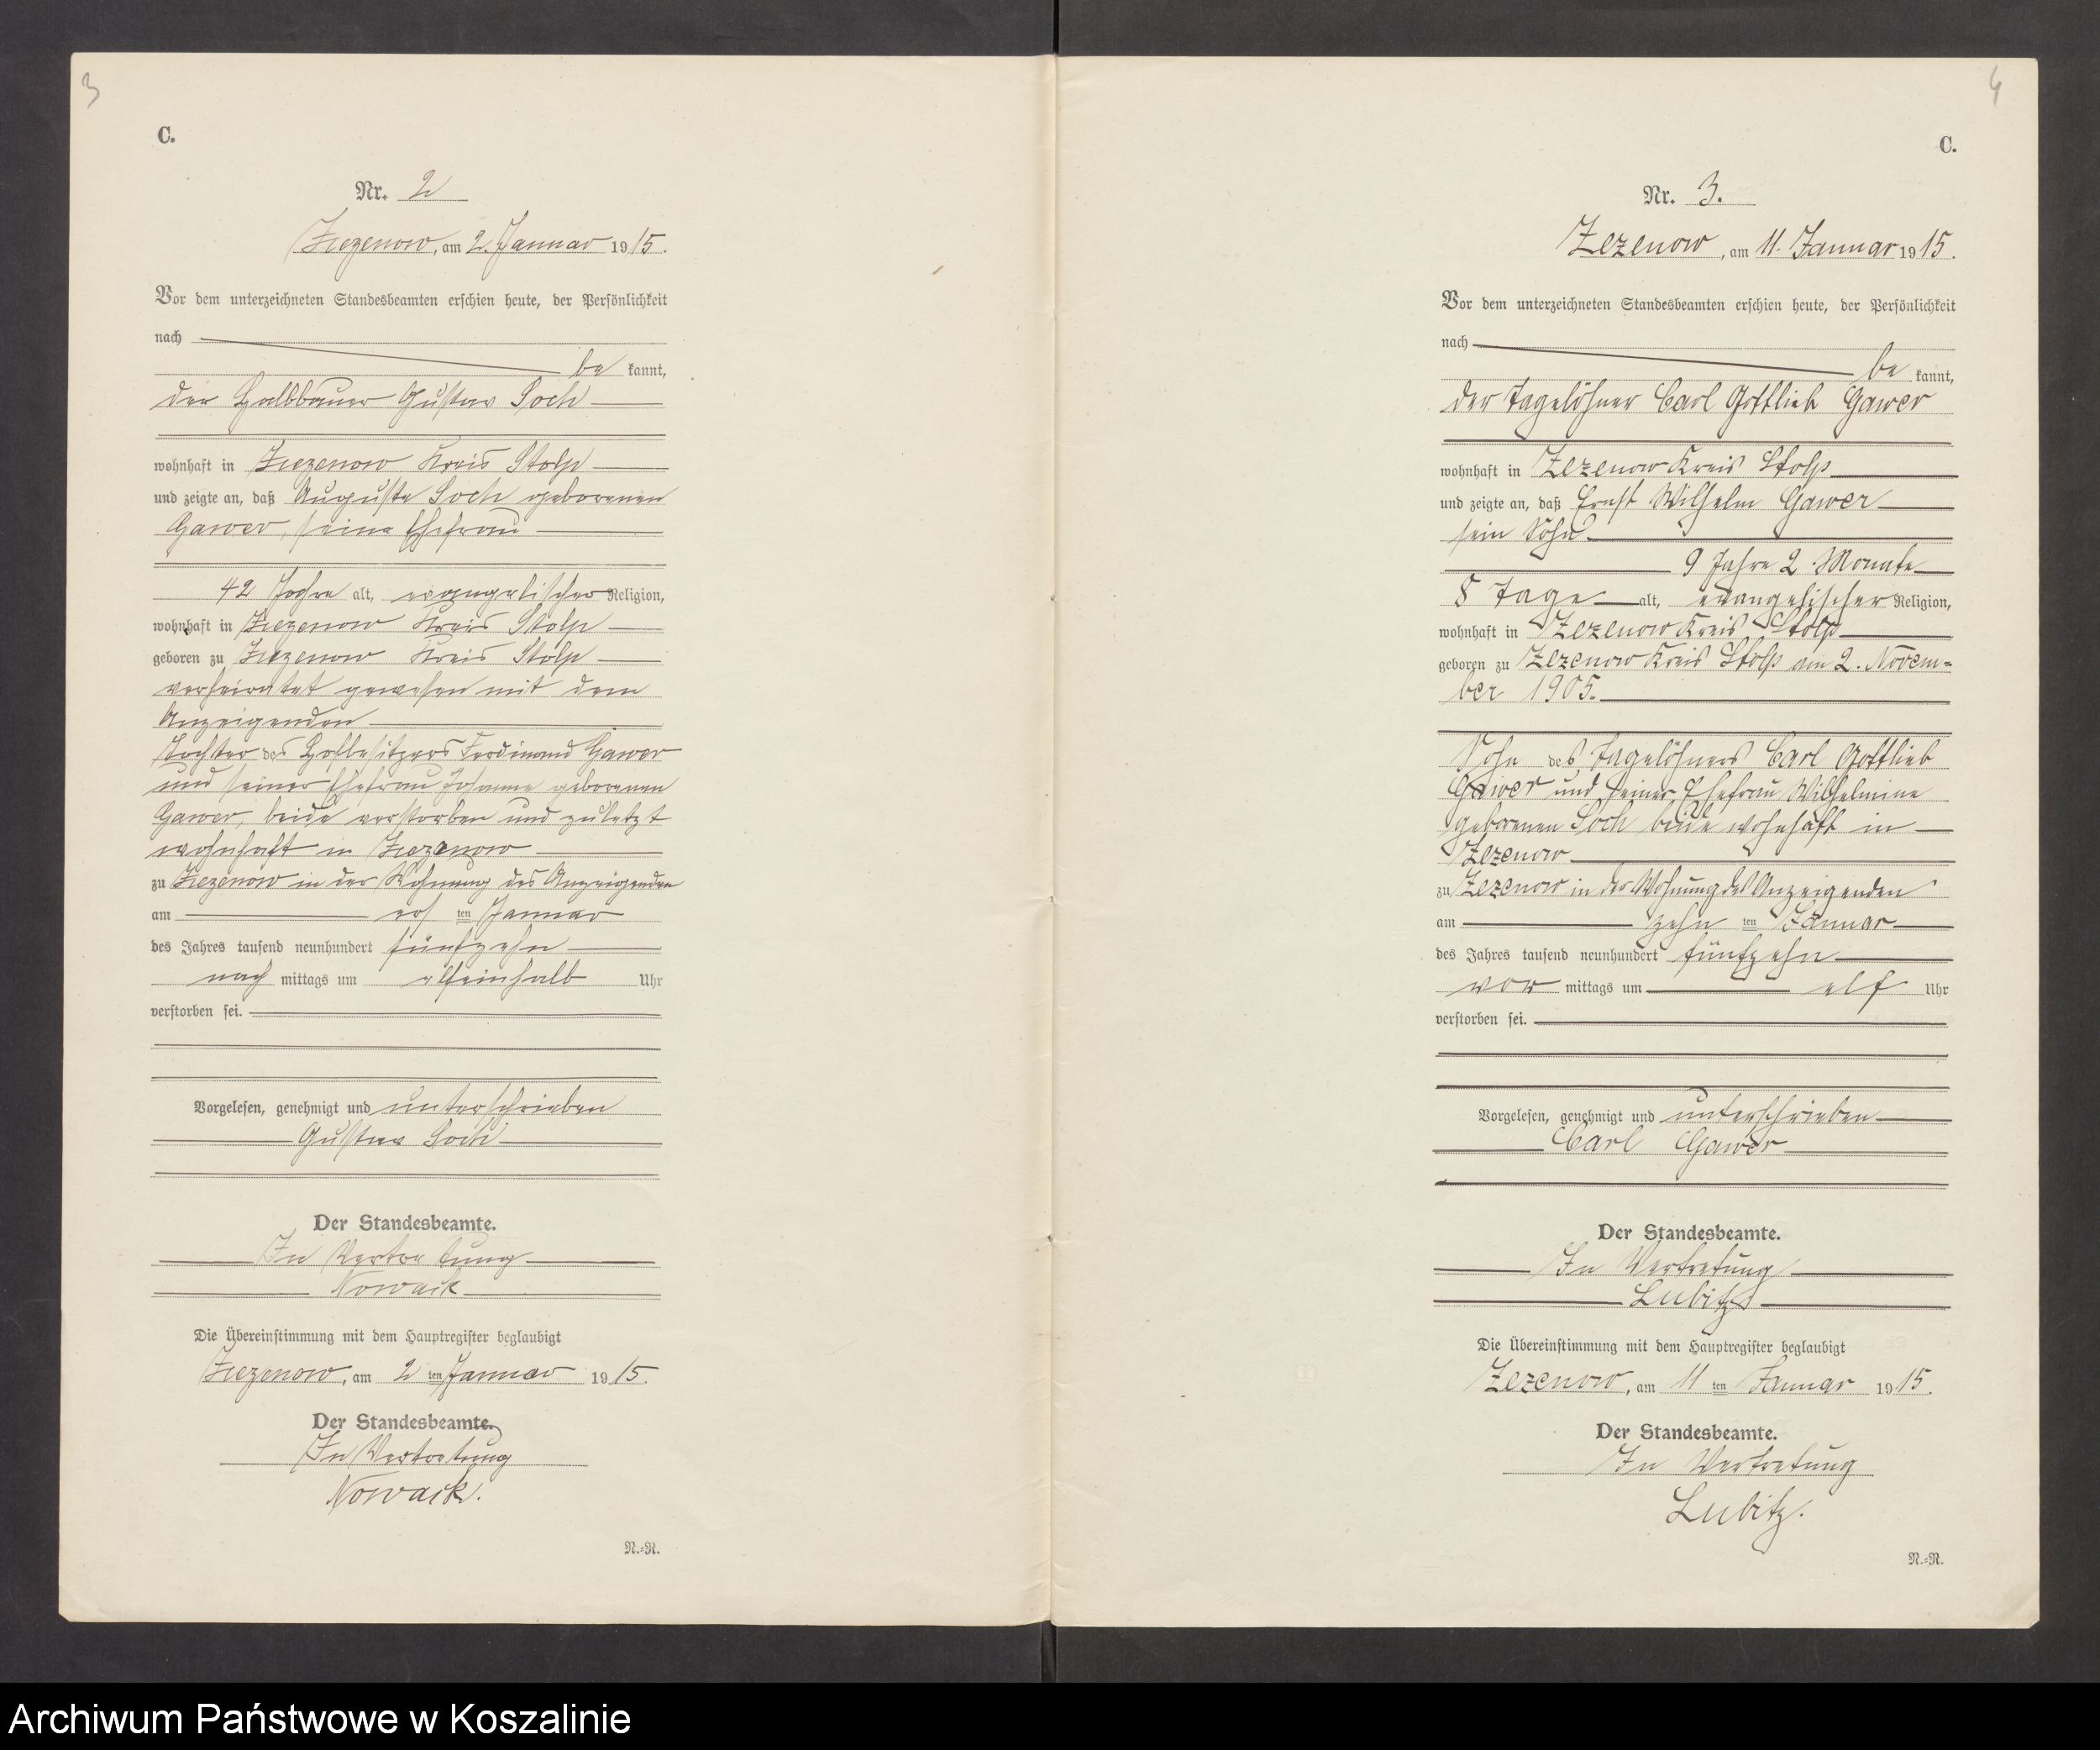 3
C.
Nr. 2
Zezenow, am 2. Januar 1915.
Vor dem unterzeichneten Standesbeamten erschien heute, der Persönlichkeit
nach
be kannt,
der Halbbauer Gustav Soch
wohnhaft in Zezenow Kreis Stolp
und zeigte an, daß Auguste Soch geborenen
Gawer, seine Ehefrau
42 Jahre alt, evangelischer Religion,
wohnhaft in Zezenow Kreis Stolp
geboren zu Zezenow Kreis Stolp
verheiratet gewesen mit dem
Anzeigenden
Tochter des Hofbesitzers Ferdinand Gawer
und seiner Ehefrau Johanne geborenen
Gawer, beide verstorben und zuletzt
wohnhaft in Zezenow
zu Zezenow in der Wohnung des Anzeigenden
am ers ten Januar
des Jahres tausend neunhundert fünfzehn
nach mittags um elfeinhalb Uhr
verstorben sei.
Vorgelesen, genehmigt und unterschrieben
Gustav Soch
Der Standesbeamte.
In Vertretung
Nowack
Die Übereinstimmung mit dem Hauptregister beglaubigt
Zezenow, am 2 ten Januar 1915.
Der Standesbeamte.
In Vertretung
Nowack.
N.-R.
4
C.
Nr. 3.
Zezenow, am 11. Januar 1915.
Vor dem unterzeichneten Standesbeamten erschien heute, der Persönlichkeit
nach
be kannt,
der Tagelöhner Carl Gottlieb Gawer
wohnhaft in Zezenow Kreis Stolp
und zeigte an, daß Ernst Wilhelm Gawer
sein Sohn
9 Jahre 2 Monate
8 Tage alt, evangelischer Religion,
wohnhaft in Zezenow Kreis Stolp
geboren zu Zezenow Kreis Stolp am 2. Novem-
ber 1905.
Sohn des Tagelöhners Carl Gottlieb
Gawer und seiner Ehefrau Wilhelmine
geborenen Soch beide wohnhaft in
Zezenow
zu Zezenow in der Wohnung des Anzeigenden
am zehn ten Januar
des Jahres tausend neunhundert fünfzehn
vor mittags um elf Uhr
verstorben sei.
Vorgelesen, genehmigt und unterschrieben
Carl Gawer
Der Standesbeamte.
In Vertretung
Lubitz
Die Übereinstimmung mit dem Hauptregister beglaubigt
Zezenow, am 11 ten Januar 1915.
Der Standesbeamte.
In Vertretung
Lubitz.
N.-R.
Archiwum Państwowe w Koszalinie